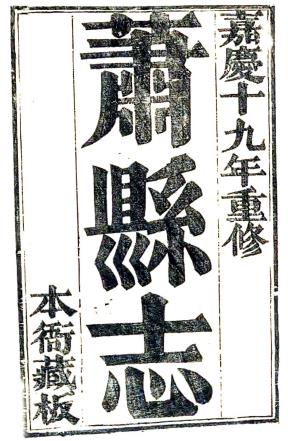 嘉慶十九年重修
蕭縣志
本衙藏板